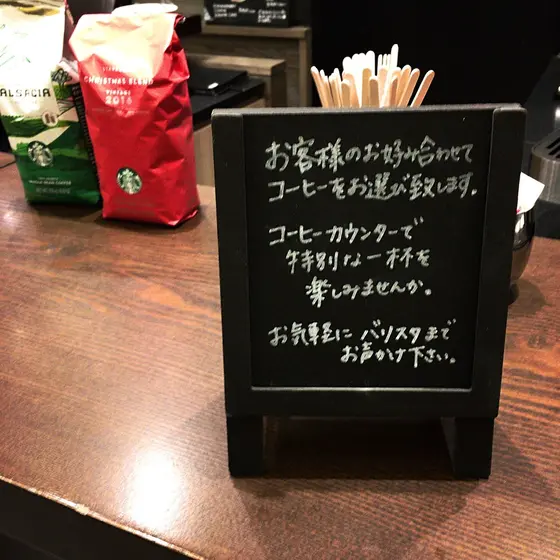 ALSACIA
CHRISTMAS BLEND
2016
お客様のお好み合わせて
コーヒーをお選び致します。
コーヒーカウンターで
特別な一杯を
楽しみませんか。
お気軽に バリスタまで
お声かけ下さい。